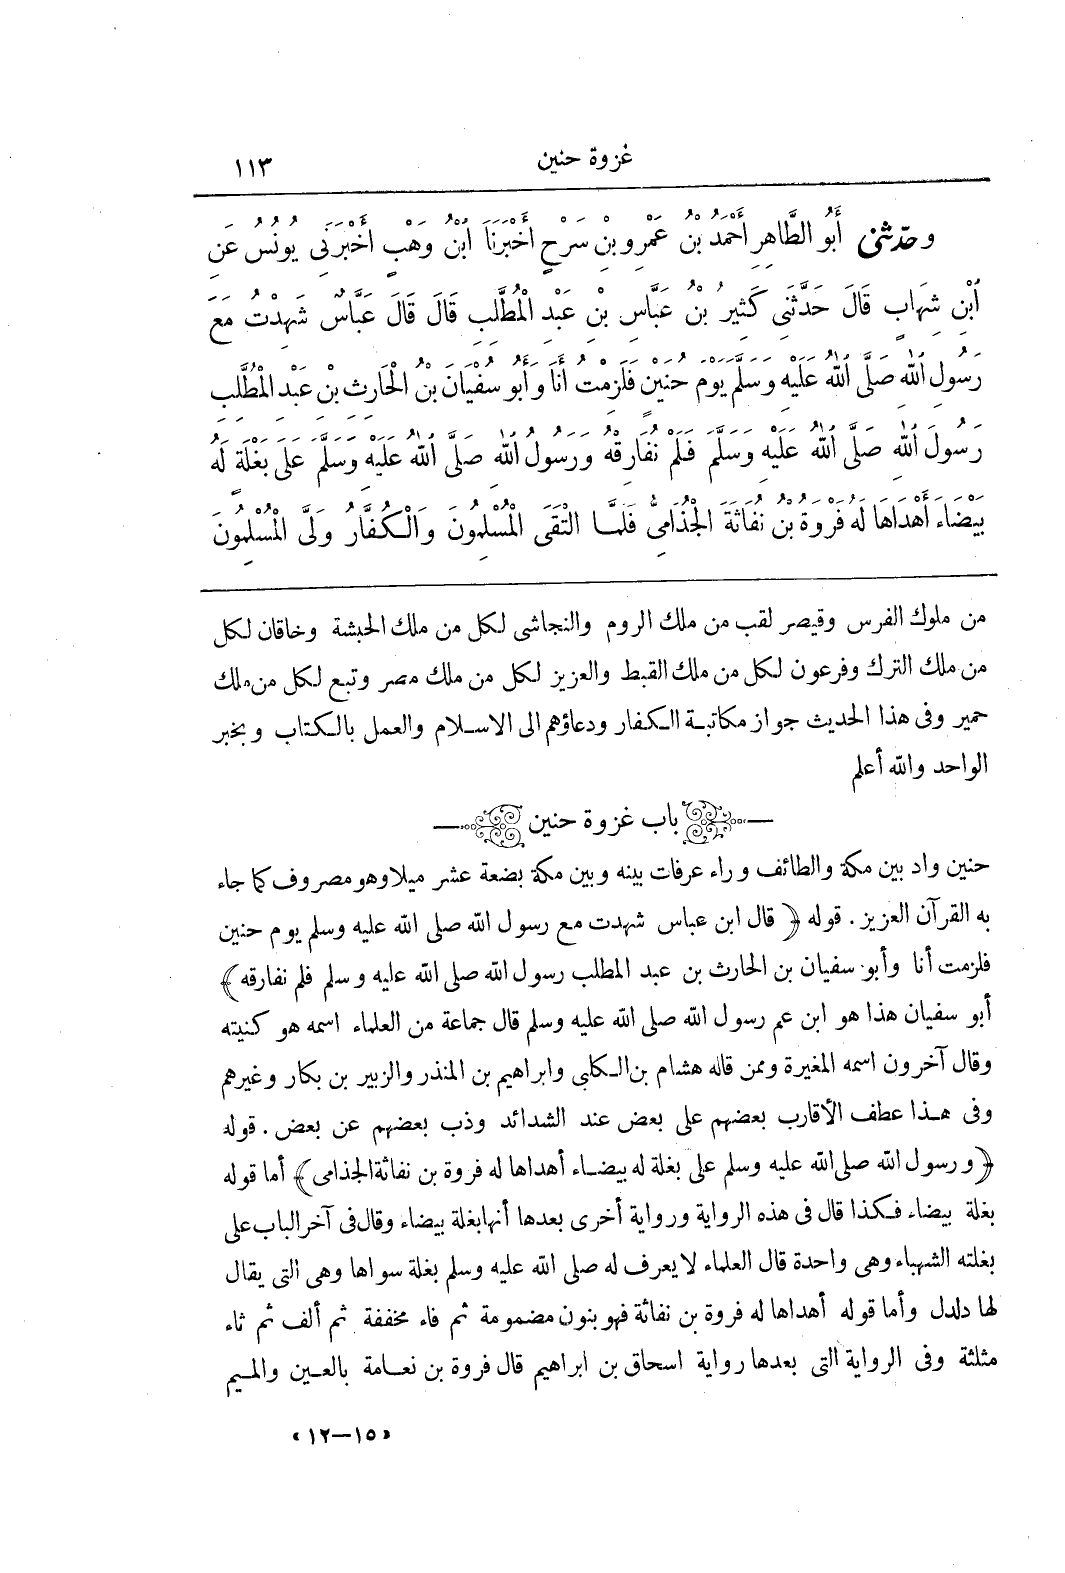 غزوة حنين ١١٣
وحدثنى أَبُو الطَّاهِرِ أَحْمَدُ بْنُ عَمْرِو بْنِ سَرْحٍ أَخْبَرَنَا ابْنُ وَهْبٍ أَخْبَرَنِى يُونُسُ عَنِ
ابْنِ شِهَابٍ قَالَ حَدَّثَنِى كَثِيرُ بْنُ عَبَّاسِ بْنِ عَبْدِ الْمُطَّلِبِ قَالَ قَالَ عَبَّاسٌ شَهِدْتُ مَعَ
رَسُولِ اللهِ صَلَّى اللهُ عَلَيْهِ وَسَلَّمَ يَوْمَ حُنَيْنٍ فَلَزِمْتُ أَنَا وَأَبُو سُفْيَانَ بْنُ الْحَارِثِ بْنِ عَبْدِ الْمُطَّلِبِ
رَسُولَ اللهِ صَلَّى اللهُ عَلَيْهِ وَسَلَّمَ فَلَمْ نُفَارِقْهُ وَرَسُولُ اللهِ صَلَّى اللهُ عَلَيْهِ وَسَلَّمَ عَلَى بَغْلَةٍ لَهُ
بَيْضَاءَ أَهْدَاهَا لَهُ فَرْوَةُ بْنُ نُفَاثَةَ الْجُذَامِىُّ فَلَمَّا الْتَقَى الْمُسْلِمُونَ وَالْكُفَّارُ وَلَّى الْمُسْلِمُونَ
من ملوك الفرس وقيصر لقب من ملك الروم والنجاشى لكل من ملك الحبشة وخاقان لكل
من ملك الترك وفرعون لكل من ملك القبط والعزيز لكل من ملك مصر وتبع لكل من ملك
حمير وفى هذا الحديث جواز مكاتبة الكفار ودعاؤهم الى الاسلام والعمل بالكتاب وبخبر
الواحد والله أعلم
باب غزوة حنين
حنين واد بين مكة والطائف وراء عرفات بينه وبين مكة بضعة عشر ميلا وهو مصروف كما جاء
به القرآن العزيز . قوله ﴿ قال ابن عباس شهدت مع رسول الله صلى الله عليه وسلم يوم حنين
فلزمت أنا وأبو سفيان بن الحارث بن عبد المطلب رسول الله صلى الله عليه وسلم فلم نفارقه ﴾
أبو سفيان هذا هو ابن عم رسول الله صلى الله عليه وسلم قال جماعة من العلماء اسمه هو كنيته
وقال آخرون اسمه المغيرة وممن قاله هشام بن الكلبى وابراهيم بن المنذر والزبير بن بكار وغيرهم
وفى هذا عطف الأقارب بعضهم على بعض عند الشدائد وذب بعضهم عن بعض . قوله
﴿ ورسول الله صلى الله عليه وسلم على بغلة له بيضاء أهداها له فروة بن نفاثة الجذامى ﴾ أما قوله
بغلة بيضاء فكذا قال فى هذه الرواية ورواية أخرى بعدها أنها بغلة بيضاء وقال فى آخر الباب على
بغلته الشهباء وهى واحدة قال العلماء لا يعرف له صلى الله عليه وسلم بغلة سواها وهى التى يقال
لها دلدل وأما قوله أهداها له فروة بن نفاثة فهو بنون مضمومة ثم فاء مخففة ثم ألف ثم ثاء
مثلثة وفى الرواية التى بعدها رواية اسحاق بن ابراهيم قال فروة بن نعامة بالعين والميم
«١٥-١٢»